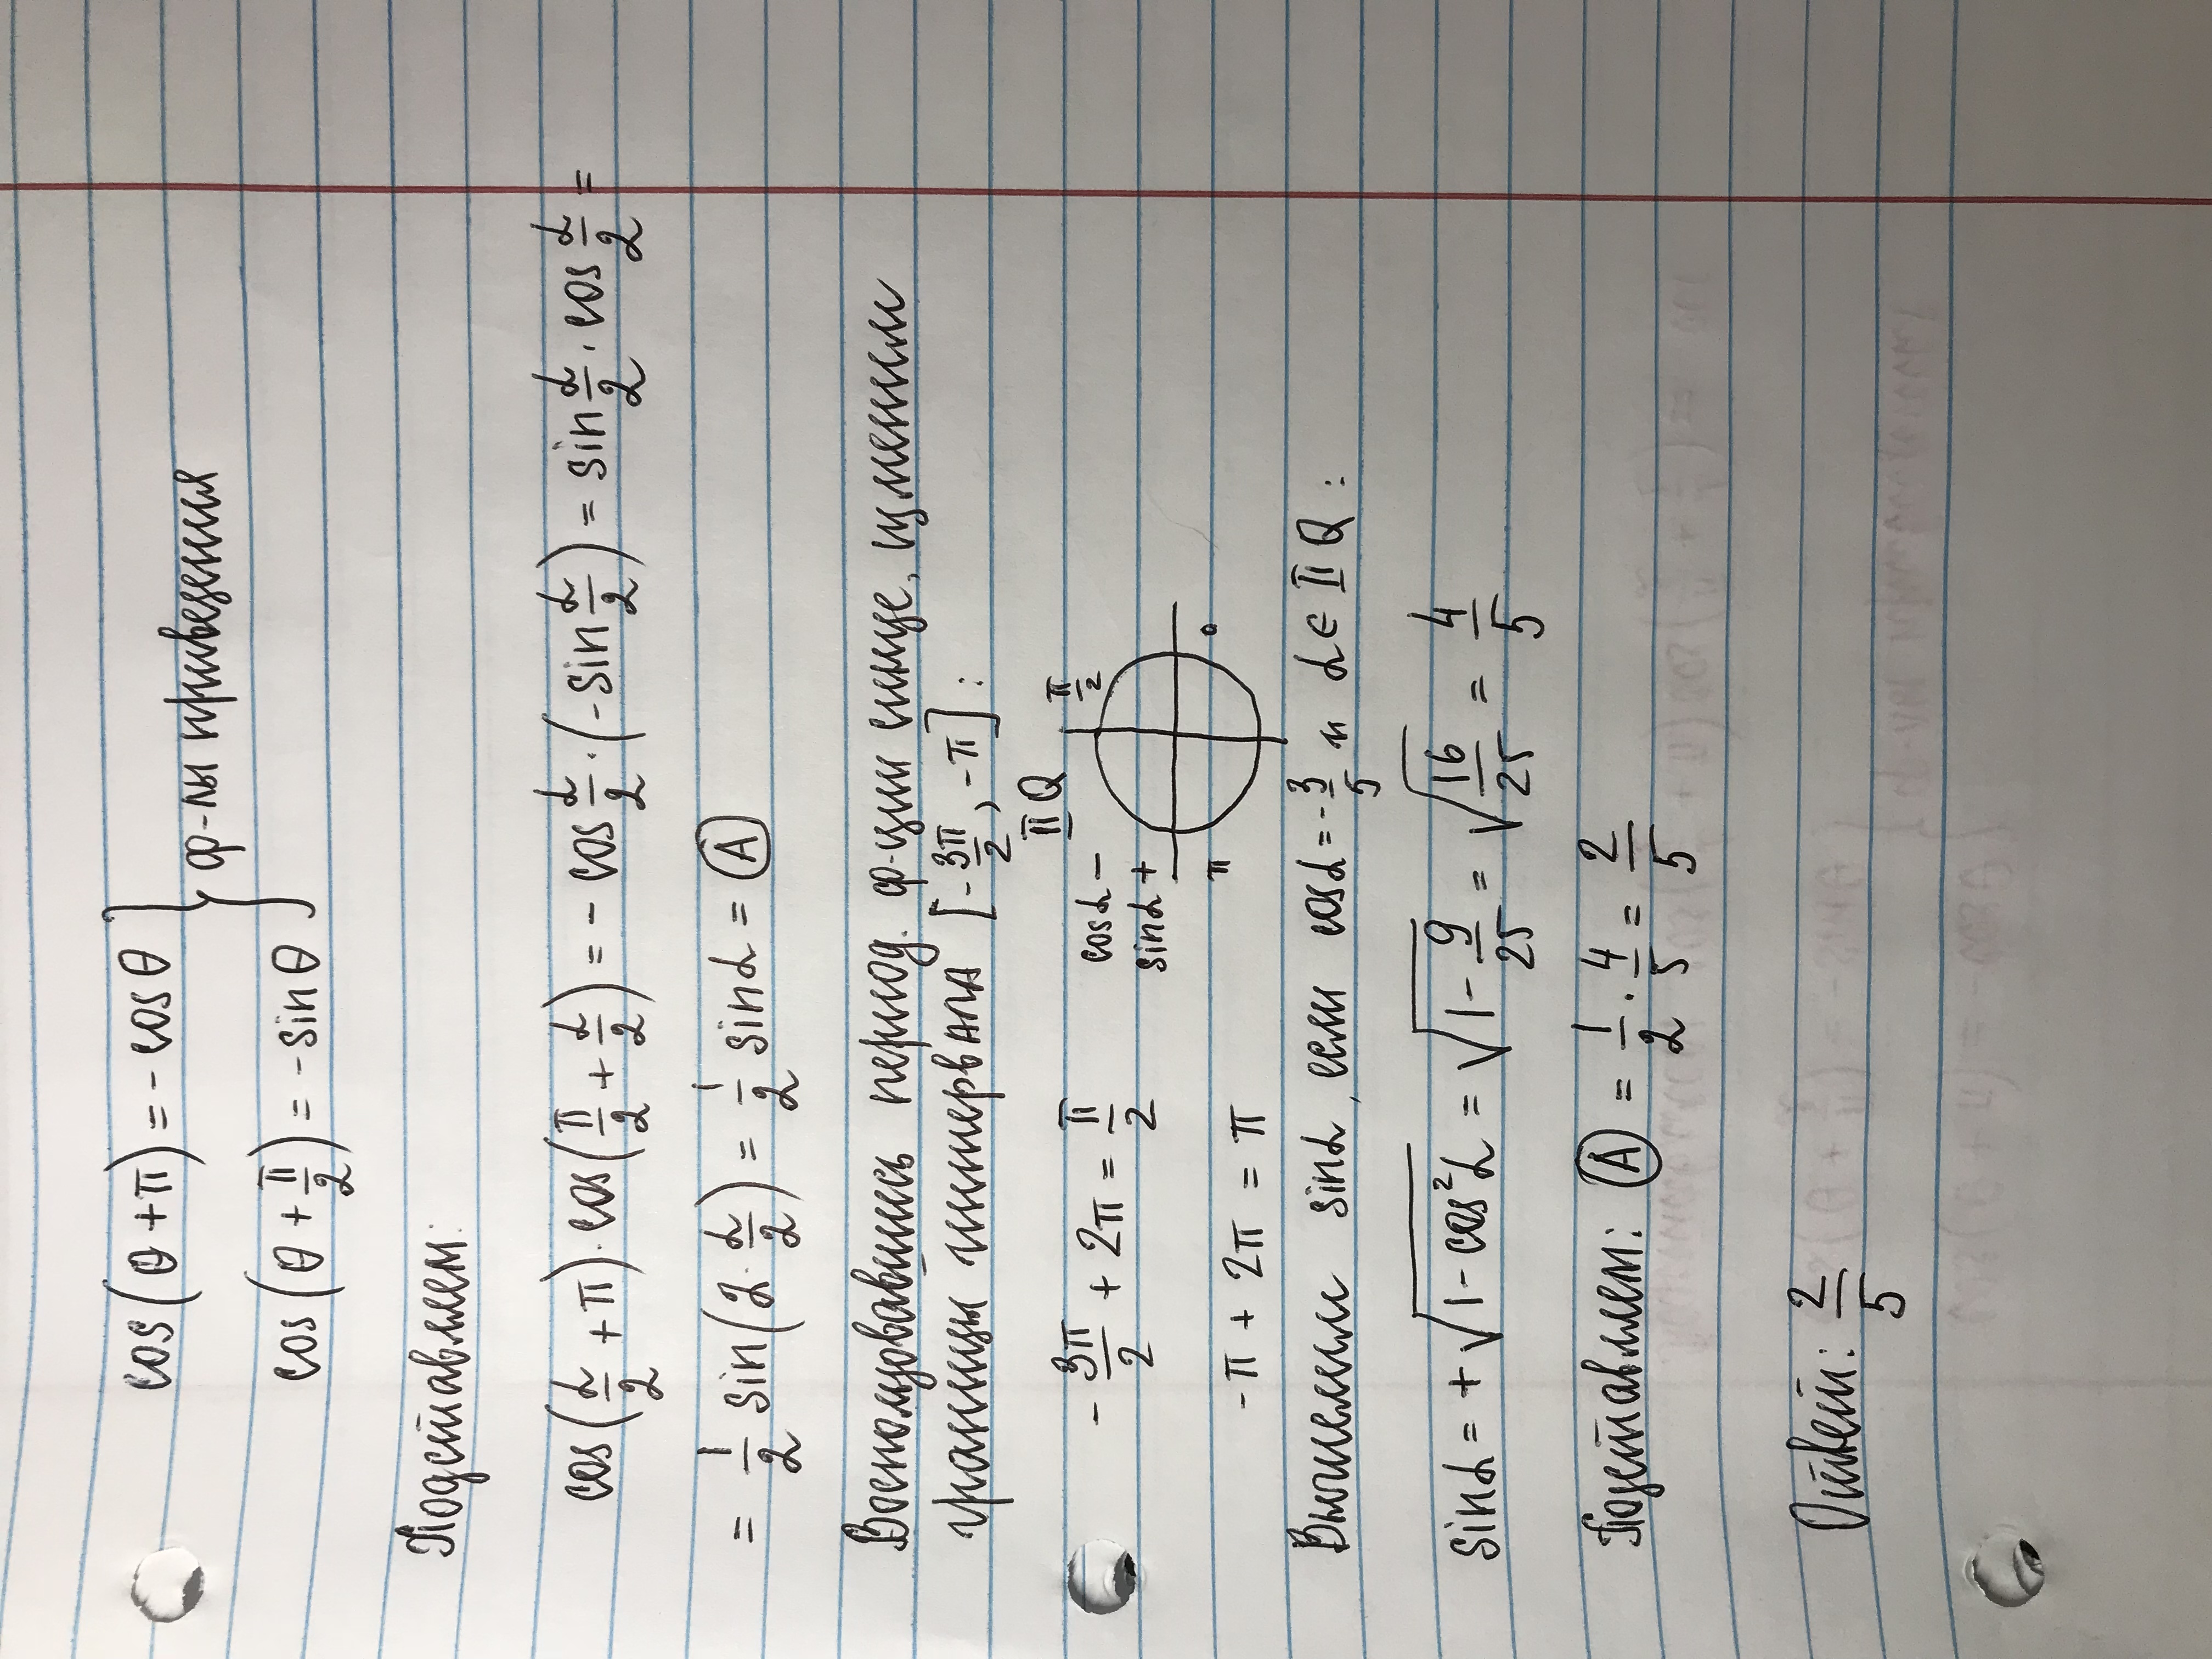 cos(θ+π) = -cosθ
cos(θ+π/2) = -sinθ } ф-лы приведения
Подставляем:
cos(α/2+π)·cos(π/2+α/2) = -cos α/2·(-sin α/2) = sin α/2·cos α/2 =
= 1/2 sin(2·α/2) = 1/2 sinα = Ⓐ
Воспользовавшись период. ф-ции синус, изменим
границы интервала [-3π/2, -π]:
-3π/2 + 2π = π/2
-π + 2π = π
II Q
cosα -
sinα +
π/2
π
0
Вычислим sinα, если cosα = -3/5 и α∈ II Q:
sinα = +√(1-cos²α) = √(1-9/25) = √(16/25) = 4/5
Подставляем: Ⓐ = 1/2·4/5 = 2/5
Ответ: 2/5